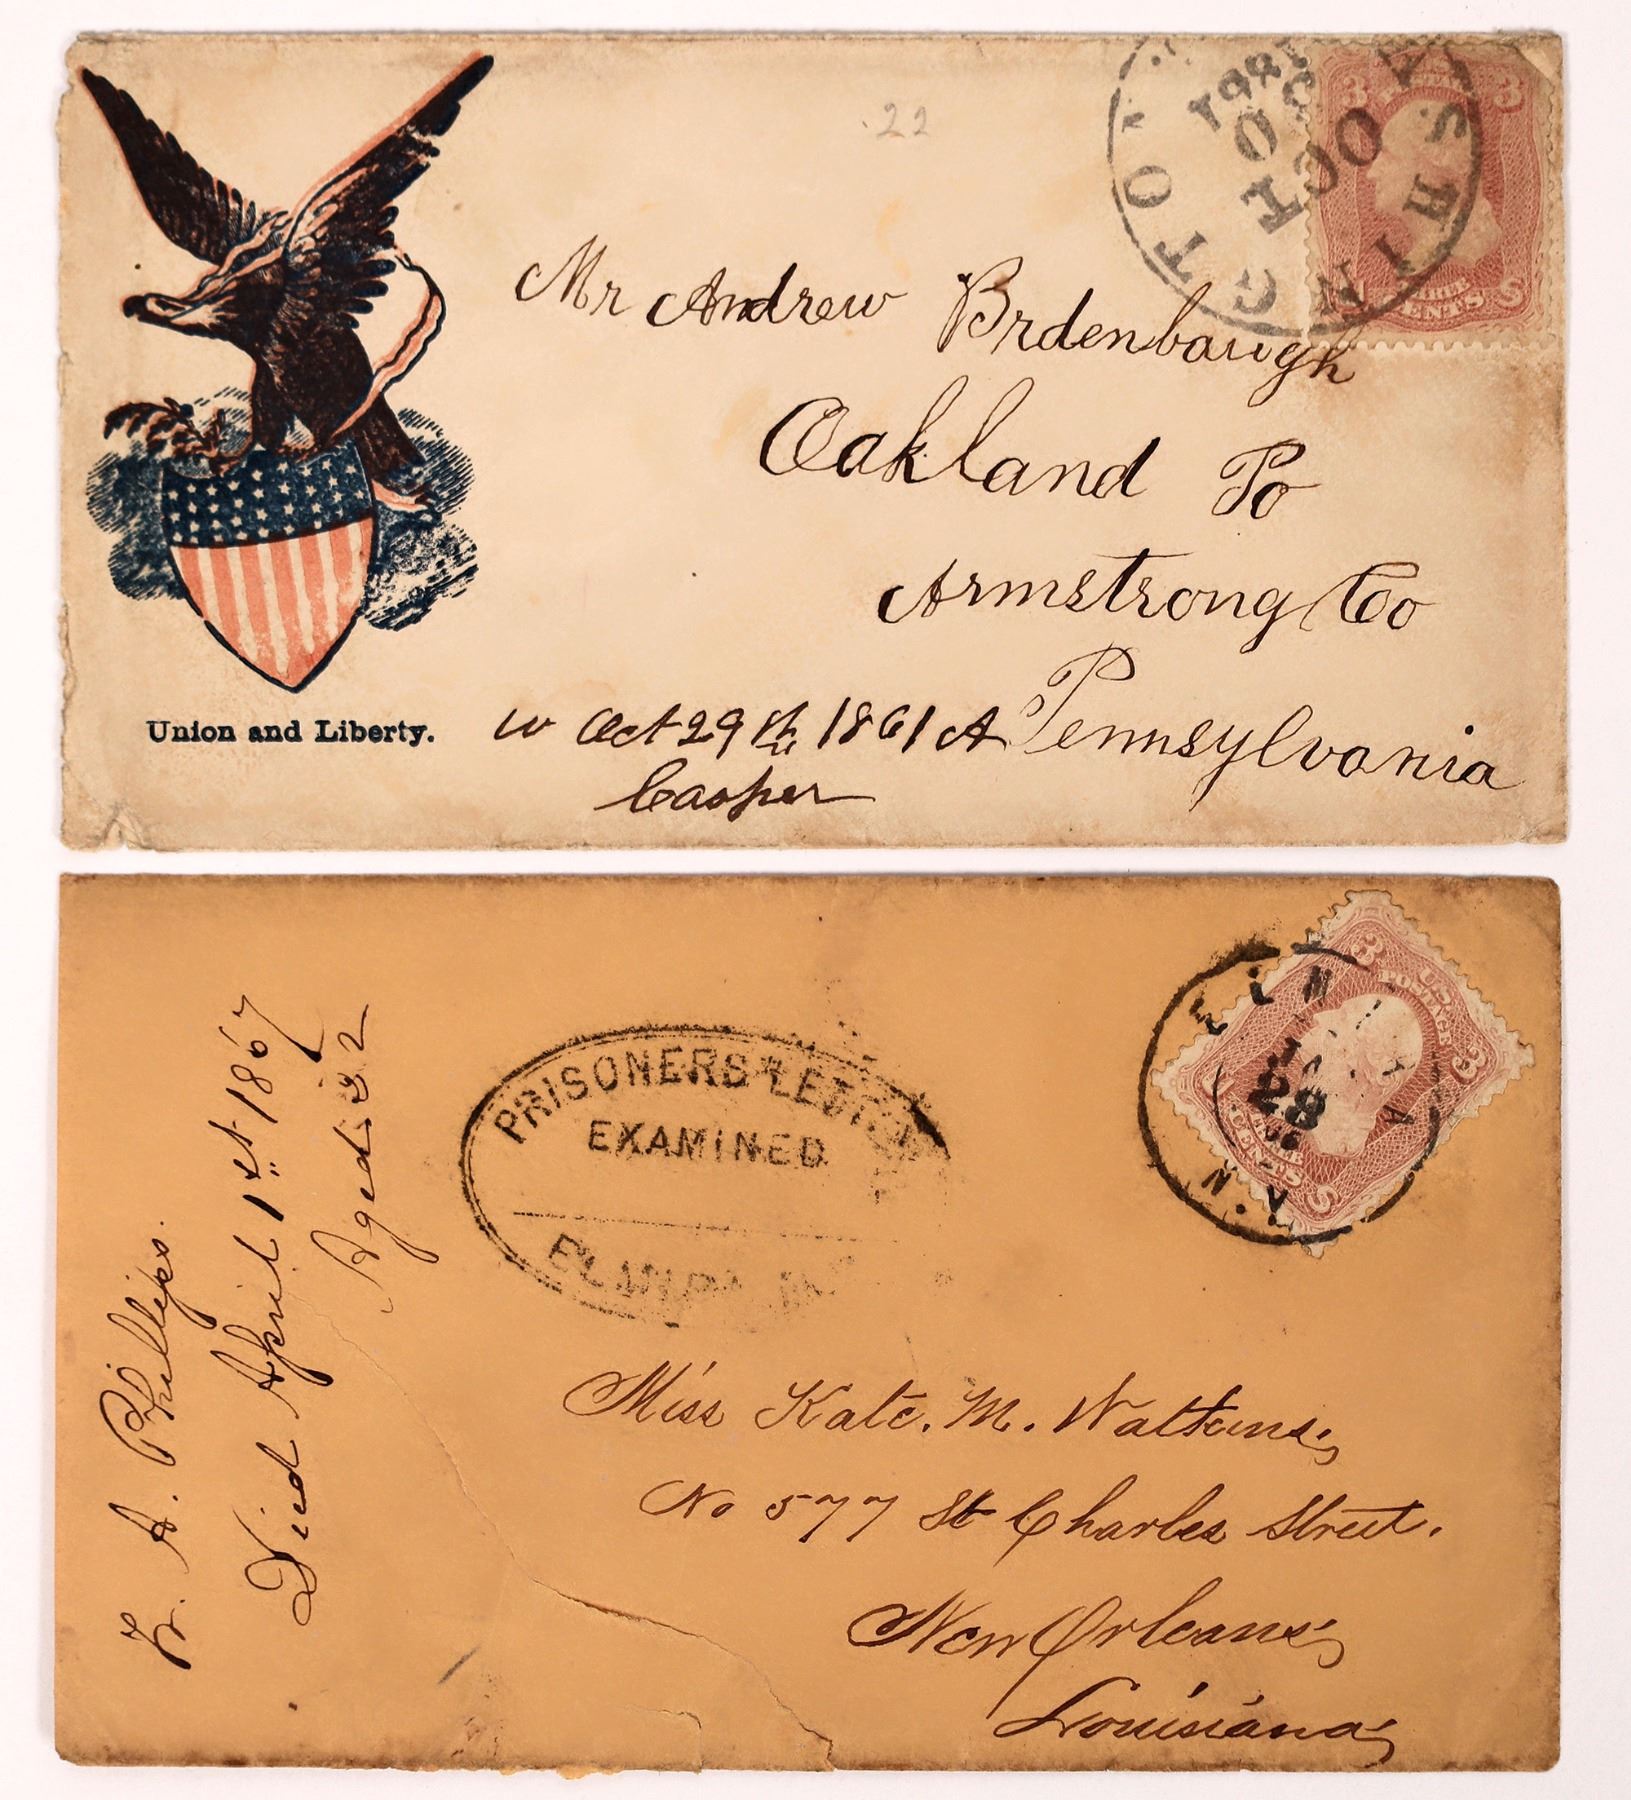 22
WASHINGTON
OCT
30
1861
3 3
U.S. POSTAGE
THREE CENTS
Mr Andrew Brdenbaugh
Oakland Po
Armstrong Co
Pennsylvania
Union and Liberty.
w Oct 29th 1861 A
Casper
PRISONERS LETTER
EXAMINED
ELMIRA
ELMIRA N.Y.
28
3 3
U.S. POSTAGE
THREE CENTS
A. Phillips.
Died April 1st 1867
Aged 32
Miss Kate. M. Watkins,
No 577 St Charles Street.
New Orleans,
Louisiana,